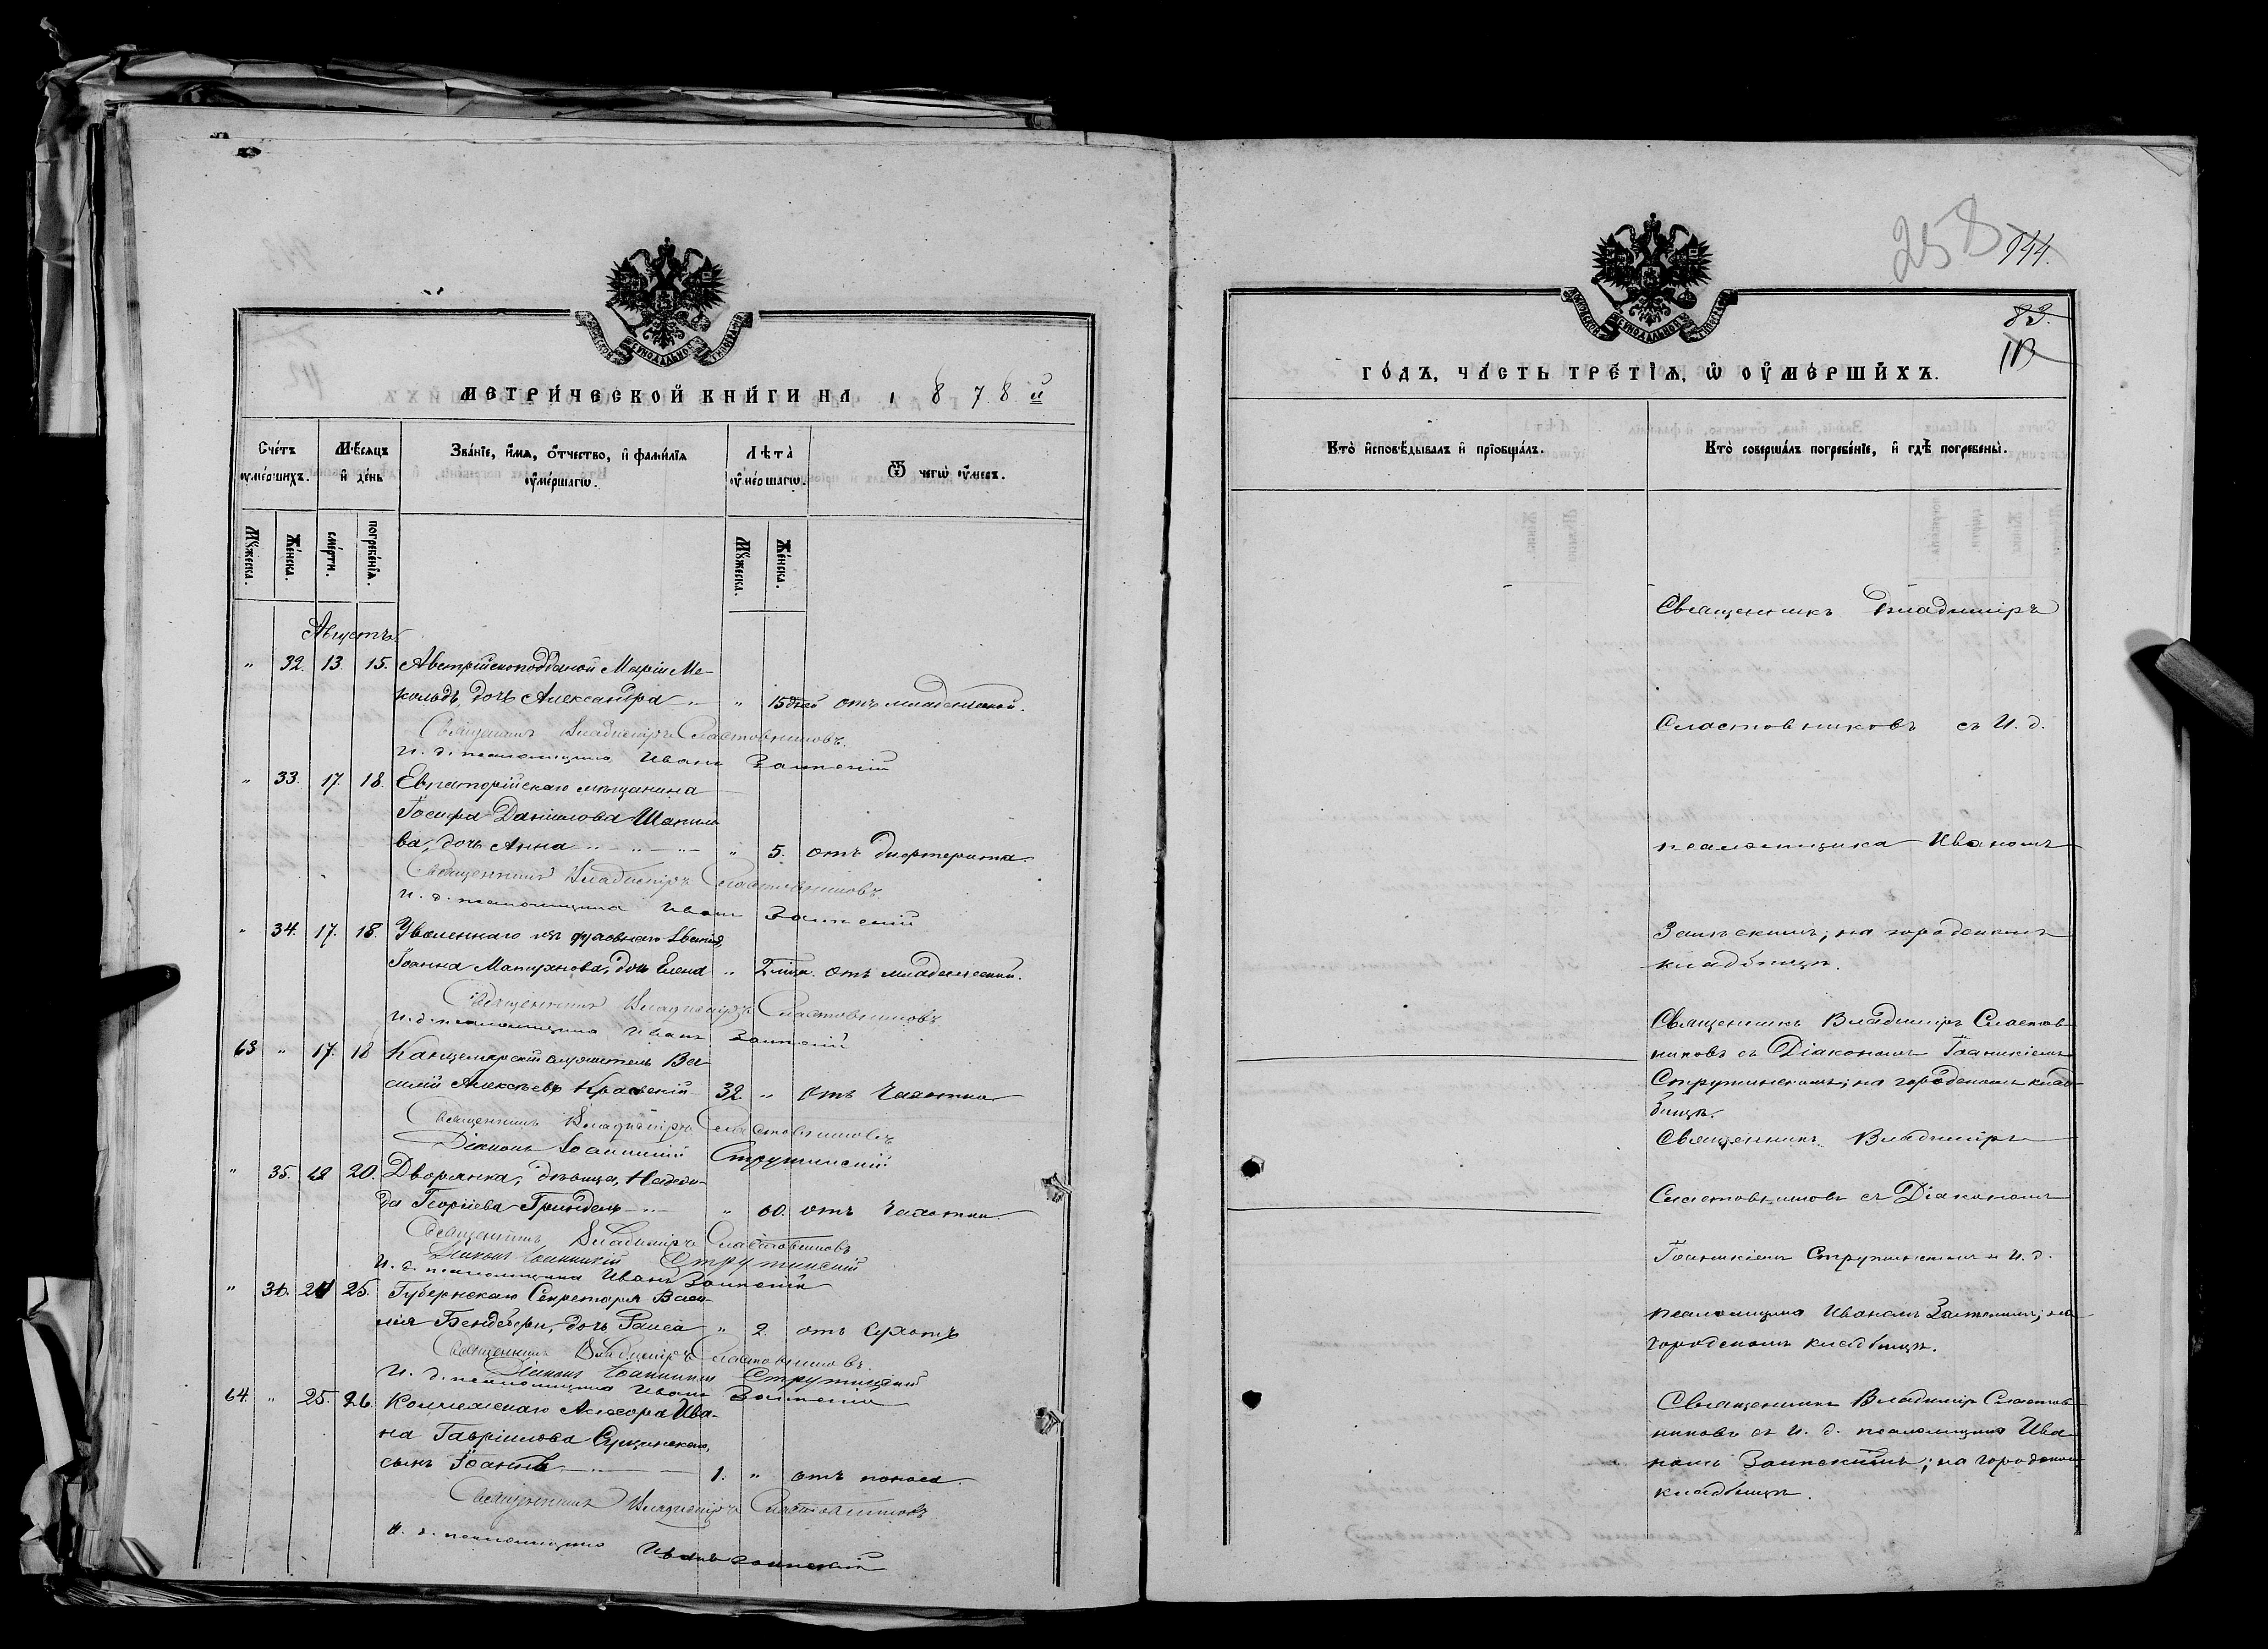 МЕТРИЧЕСКОЙ КНИГИ НА 1878 й
Счетъ умершихъ.
Мѣсяцъ и день
Званіе, имя, отчество, и фамилія умершагѡ.
Лѣта умершагѡ.
Ѿ чегѡ умеръ.
Мужеска.
Женска.
смерти.
погребенія.
Мужеска.
Женска.
Августъ
" 32. 13. 15. Австрійскоподданой Маріи Ме-
кольдъ, дочь Александра " 15 дней отъ младенческой.
Священникъ Владиміръ Сластовниковъ.
И. д. псаломщика Иванъ
" 33. 17. 18. Евпаторійскаго мѣщанина
Іосифа Даніилова Шапила
ва, дочь Анна " 5. отъ дифтерита.
Священникъ Владиміръ Сластовниковъ
И. д. псаломщика Иванъ
" 34. 17. 18. Уволеннаго изъ духовнаго званія,
Іоанна Матуханова, дочь Елена " отъ младенческой.
Священникъ Владиміръ Сластовниковъ
И. д. псаломщика Иванъ
63 " 17. 18 Канцелярскій служитель Ва-
силій Алексѣевъ 32. " отъ чахотки
Священникъ Владиміръ Сластовниковъ
Діаконъ Іоанникій Стружинскій
" 35. 20. Дворянка, дѣвица, Надеж-
да Георгіева " 60. отъ чахотки.
Священникъ Владиміръ Сластовниковъ
Діаконъ Іоанникій
И. д. псаломщика Иванъ
" 36. 24 25. Губернскаго Секретаря Васи-
лія Бендебери, дочь Раиса " 2. отъ сухотъ
Священникъ Владиміръ Сластовниковъ.
Діаконъ Іоанникій
И. д. псаломщика Иванъ
64. " 25. 26. Коллежскаго Асесора Ива-
на Гавріилова Сущинскаго,
сынъ Іоаннъ 1. " отъ поноса.
Священникъ Владиміръ Сластовниковъ
И. д. псаломщика Иванъ
258 944.
83.
ГОДЪ, ЧАСТЬ ТРЕТІЯ, Ѡ УМЕРШИХЪ.
Кто исповѣдывалъ и пріобщалъ.
Кто совершалъ погребеніе, и гдѣ погребены.
Священникъ Владиміръ
Сластовниковъ съ И. д.
псаломщика Иваномъ
на городскомъ
кладбищѣ.
Священникъ Владиміръ Сластов-
никовъ съ Діакономъ Іоанникіемъ
Стружинскимъ; на городскомъ клад-
бищѣ.
Священникъ Владиміръ
Сластовниковъ съ Діакономъ
Іоанникіемъ Стружинскимъ и И. д.
псаломщика Иваномъ на
городскомъ кладбищѣ.
Священникъ Владиміръ Сластов-
никовъ съ И. д. псаломщика Ива
номъ на городскомъ
кладбищѣ.